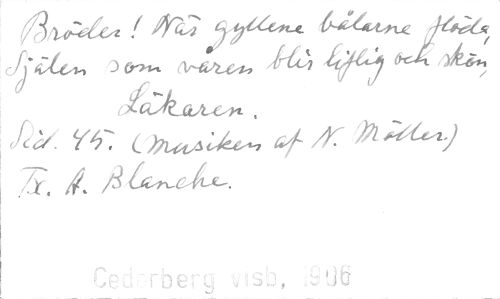 Bröder! När gyllene bålarne flöda,
Själen som våren blir liflig och skön,
Läkaren.
Sid. 45. (Musiken af N. Möller.)
Tx. A. Blanche.
Cederberg visb, 1906